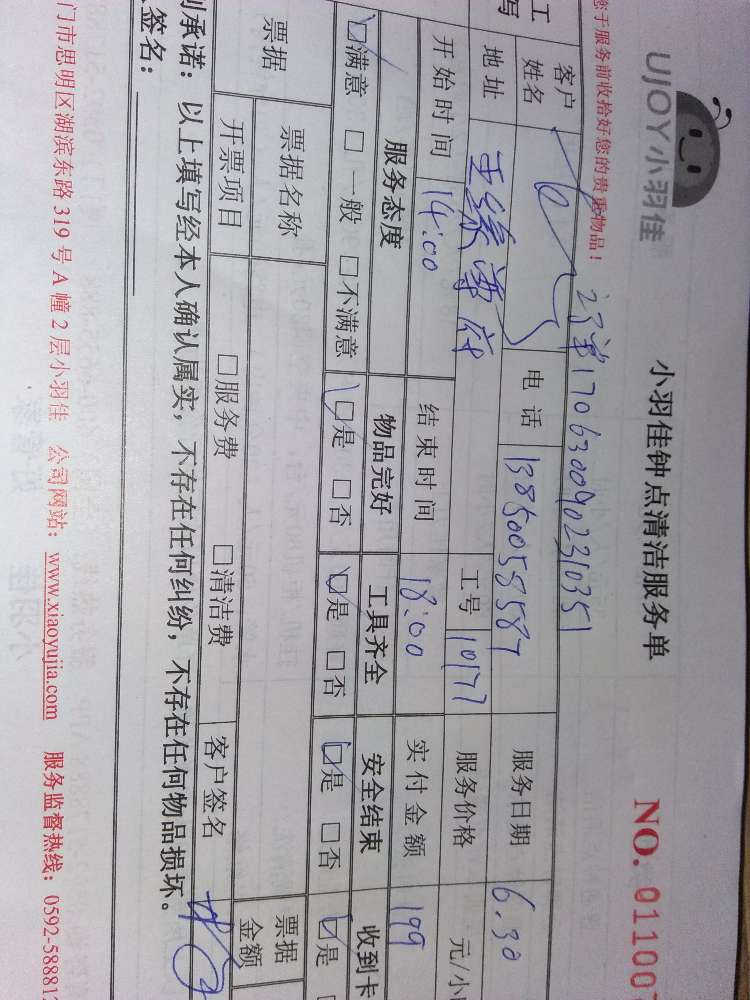 UJOY小羽佳
小羽佳钟点清洁服务单
NO. 01100
您于服务前收拾好您的贵重物品！
23单1706300902310351
客户姓名 电话 13850058587 服务日期 6.30
地址 工号 10177 服务价格 元/小
开始时间 14:00 结束时间 18:00 实付金额 199
服务态度 物品完好 工具齐全 安全结束 收到卡
☑满意 □一般 □不满意 ☑是 □否 ☑是 □否 ☑是 □否 ☑是
票据 票据名称 票据金额
开票项目 □服务费 □清洁费 客户签名
承诺：以上填写经本人确认属实，不存在任何纠纷，不存在任何物品损坏。
签名：
门市思明区湖滨东路319号A幢2层小羽佳 公司网站：www.xiaoyujia.com 服务监督热线：0592-58881